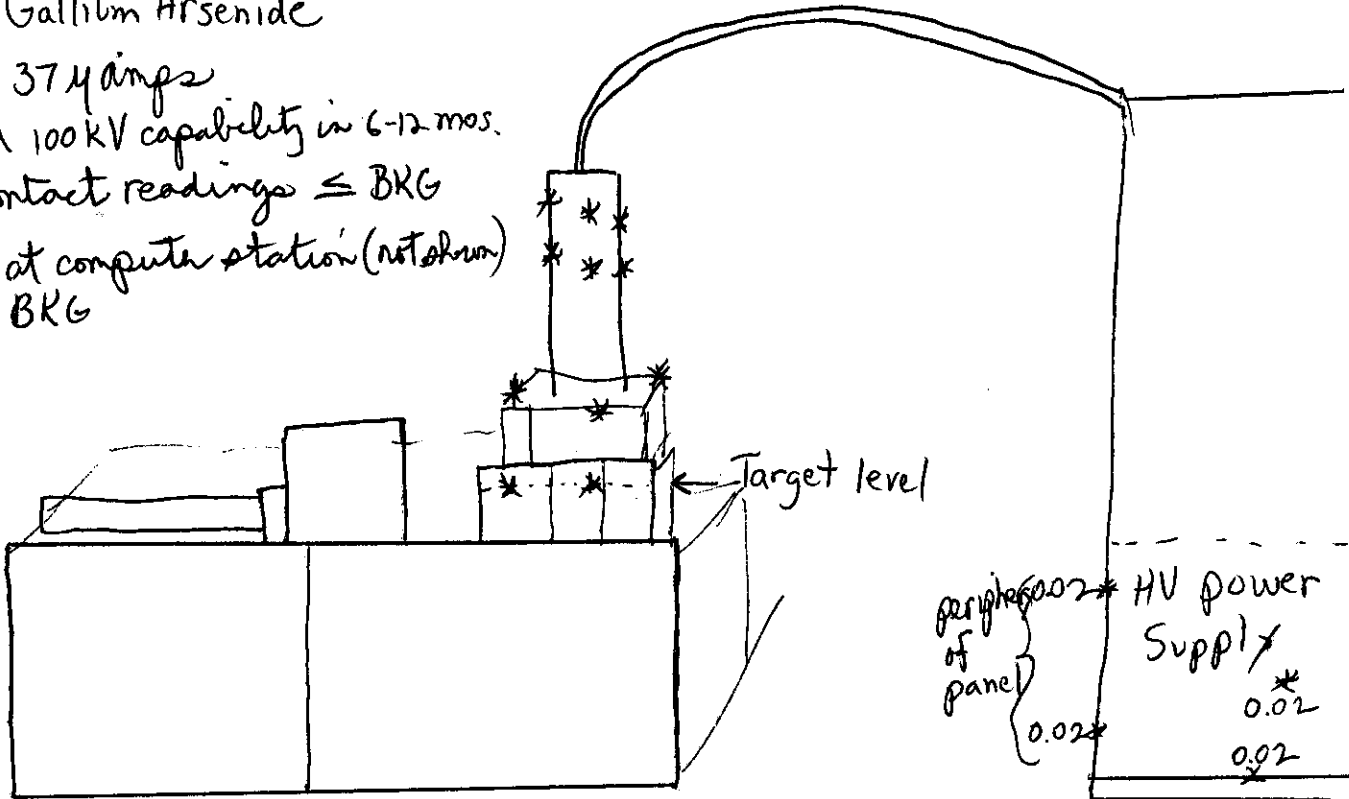 Gallium Arsenide
37 μamps
100 kV capability in 6-12 mos.
ontact readings ≤ BKG
at computer station (not shown)
BKG
Target level
periphery
of
panel
0.02
0.02
HV power
Supply
0.02
0.02